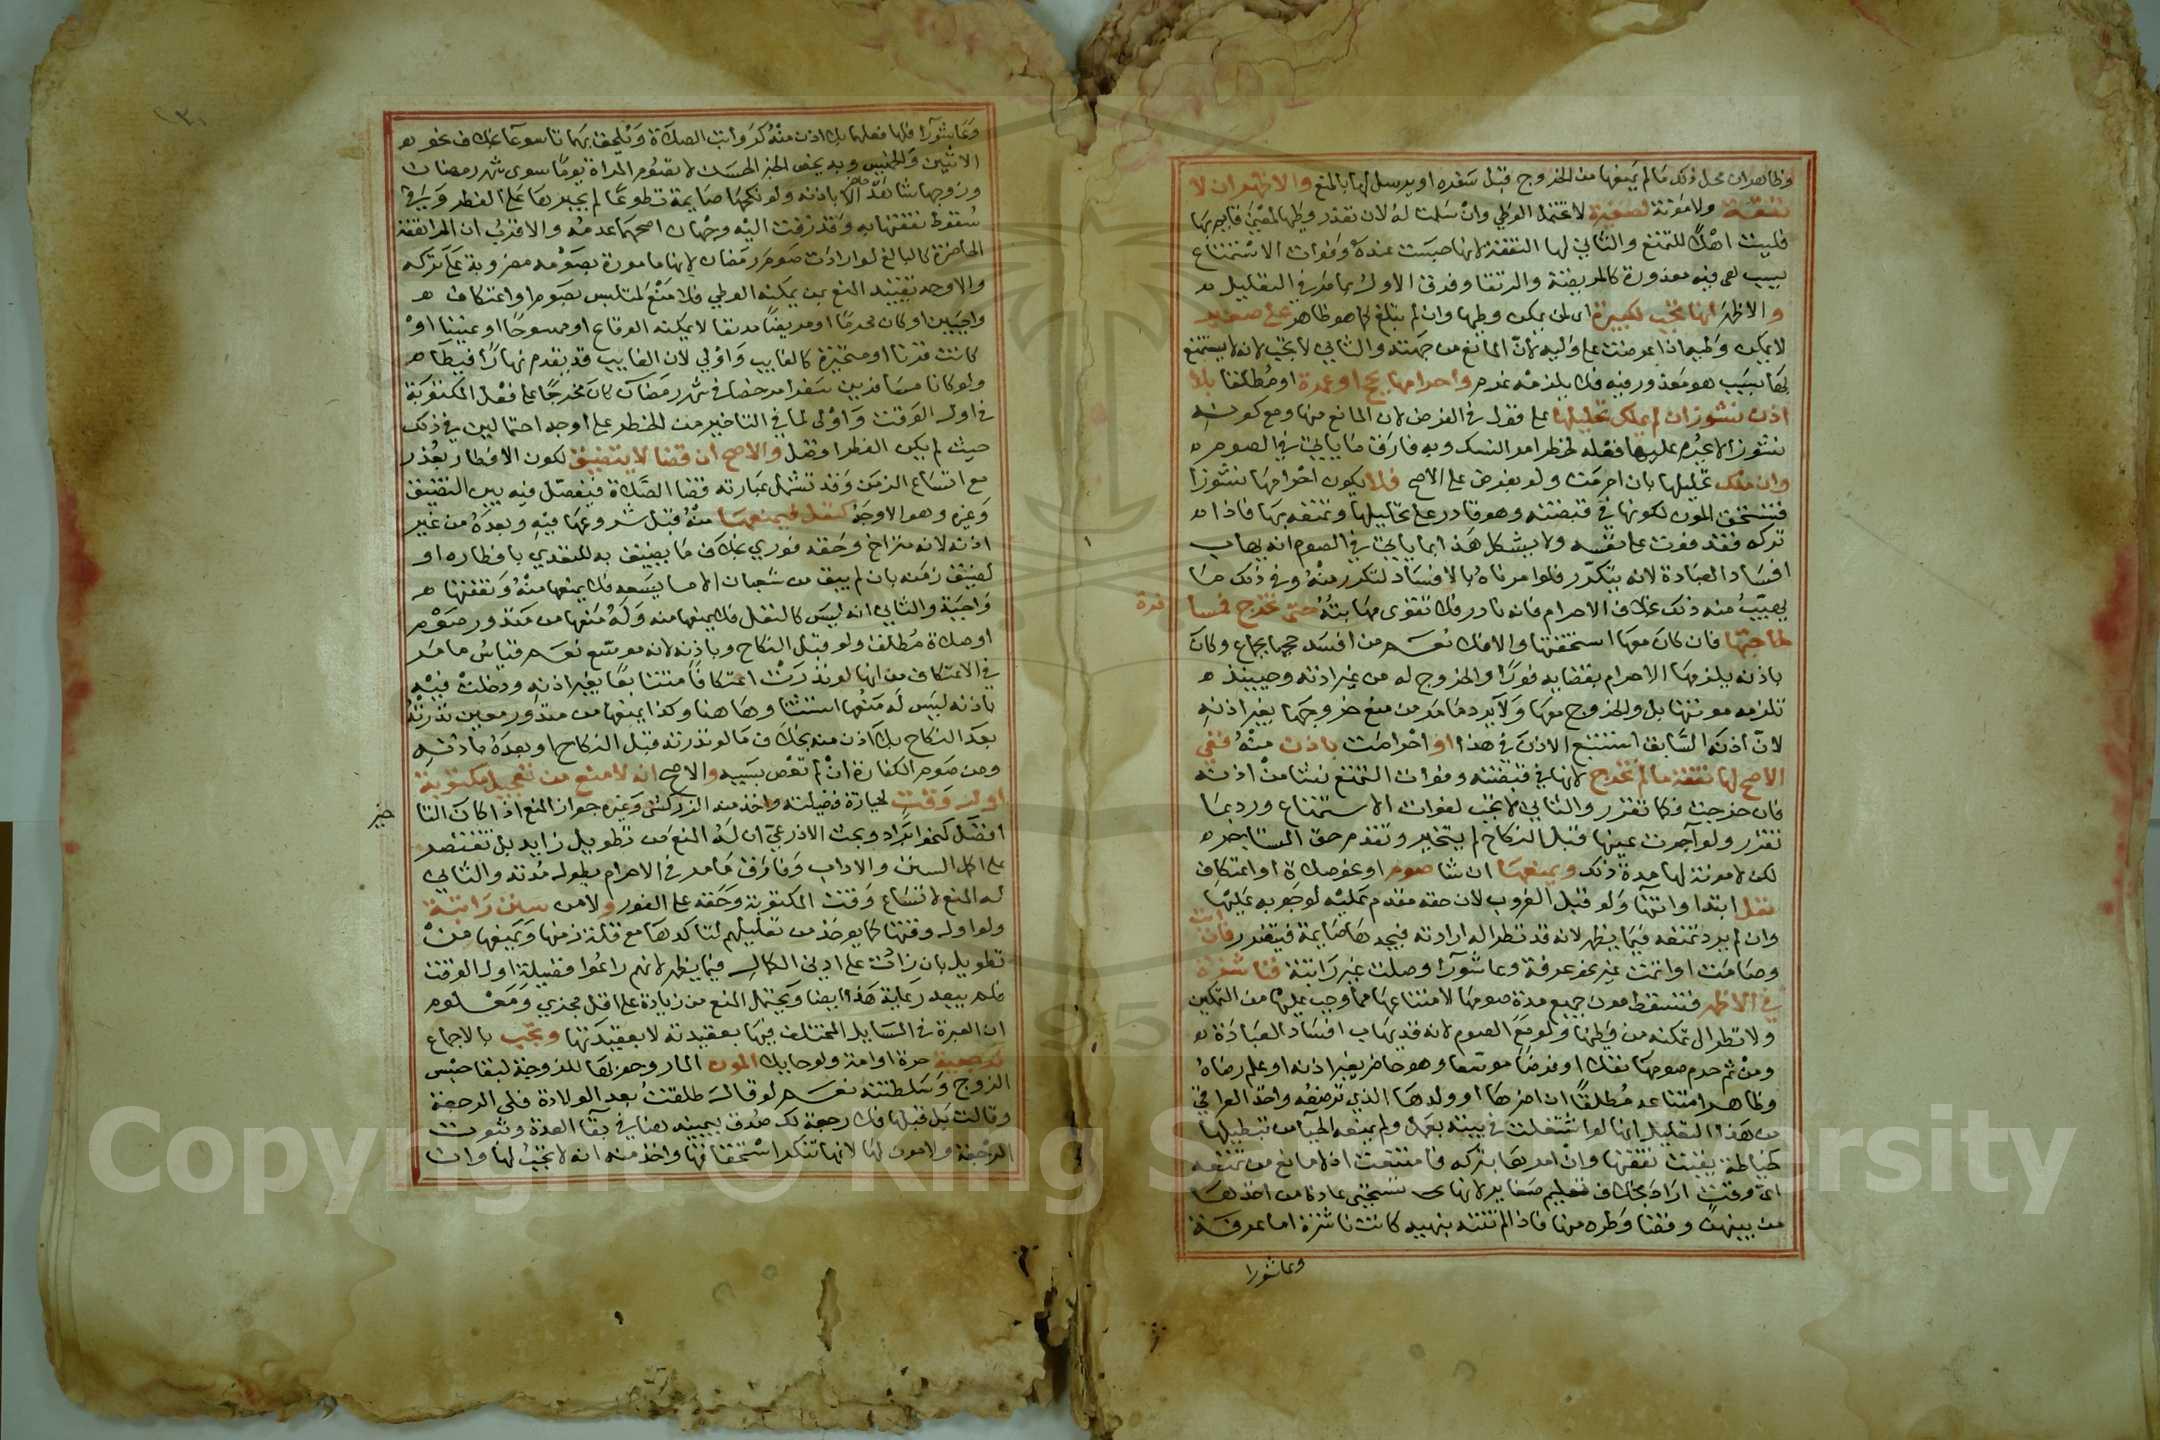 وظاهر ان محل ذلك ما لم يمنعها من الخروج قبل سفره او يرسل لها بالمنع والاظهر ان لا
نفقة ولا مؤنة لصغيرة لا تحتمل الوطي وان سلمت له لان تعذر وطيها لمعنى قايم بها
فليست اهلا للتمتع والثاني لها النفقة لانها حبست عنده وفوات الاستمتاع
بسبب هي فيه معذورة كالمريضة والرتقا وفرق الاول بما مر في التعليل
والاظهر انها تجب لكبيرة اي لمن يمكن وطيها وان لم تبلغ كما هو ظاهر على صغير
لا يمكن وطيه اذا عرضت على وليه لان المانع من جهته والثاني لا تجب لانه لا يستمتع
بها بسبب هو معذور فيه فلا يلزمه غرم واحرامها بحج او عمرة او مطلقا بلا
اذن نشوز ان لم يملك تحليلها على قول في الفرض لان المانع منها ومع كونه
نشوزا لا يحرم عليها فعله لخطر امر النسك وبه فارق ما ياتي في الصوم
وان ملك تحليلها بان احرمت ولو بفرض على الاصح فلا يكون احرامها نشوزا
فتستحق المون لكونها في قبضته وهو قادر على تحليلها وتمتعه بها فاذا
تركه فقد فوت على نفسه ولا يشكل هذا بما ياتي في الصوم انه يهاب
افساد العبادة لانه يتكرر فلو امرناه بالافساد لتكرر منه وفي ذلك ما
يهيب منه ذلك بخلاف الاحرام فانه نادر فلا تقوى مهابته حتى تخرج فمسافرة
لحاجتها فان كان معها استحقتها والا فلا نعم من افسد حجها بجماع وكان
باذنه يلزمها الاحرام بقضايه فورا والخروج له من غير اذنه وحينيذ
تلزمه مونتها بل والخروج معها ولا يرد ما مر من منع خروجها بغير اذنه
لان اذنه السابق استتبع الاذن في هذا او احرامت باذن منه ففي
الاصح لها نفقة ما لم تخرج لانها في قبضته وفوات التمتع نشا من اذنه
فان خرجت فكما تقرر والثاني لا تجب لفوات الاستمتاع ورد بما
تقرر ولو آجرت عينها قبل النكاح لم يتخير وتقدم حق المستاجر
لكن لا مونة لها مدة ذلك ويمنعها ان شا صوم او نحو صلاة او اعتكاف
نفل ابتدا وانتها ولو قبل الغروب لان حقه مقدم عليه لوجوبه عليها
وان لم يرد تمتعه فيما يظهر لانه قد تطرا له ارادته فيجدها صايمة فيتضرر فان ابت
وصامت او اتمت غير نحو عرفة وعاشورا وصلت غير راتبة فناشزة
في الاظهر فتسقط مون جميع مدة صومها لامتناعها مما وجب عليها من التمكين
ولا نظر الى تمكنه من وطيها ولو مع الصوم لانه قد يهاب افساد العبادة
ومن ثم حرم صومها نفلا او فرضا موسعا وهو حاضر بغير اذنه او علم رضاه
وظاهر امتناعه مطلقا ان اضرها او ولدها الذي ترضعه واخذ العراقي
من هذا التعليل انها لو اشتغلت في بيته بعمل ولم يمنعه الحيا من تبطيلها
كخياطة بقيت نفقتها وان امرها بتركه فامتنعت اذ لا مانع من تمتعه
اي وقت اراد بخلاف تعليم صغاير لانها يستحيي عادة من اخذها
من بينهن وقضا وطره منها فاذا لم تنته بنهيه كانت ناشزة اما عرفة
وعاشورا
وعاشورا فلها فعلهما بلا اذن منه كرواتب الصلاة ويلحق بهما تاسوعا بخلاف نحو
الاثنين والخميس وبه يخص الخبر الحسن لا تصوم المراة يوما سوى شهر رمضان
وزوجها شاهد الا باذنه ولو نكحها صايمة تطوعا لم يجبرها على الفطر وفي
سقوط نفقتها به وقد زفت اليه وجهان اصحهما عدمه والاقرب ان المراهقة
الحاضرة كالبالغ لو ارادت صوم رمضان لانها مامورة بصومه مضروبة على تركه
والاوجه تقييد المنع بمن يمكنه الوطي فلا منع لمتلبس بصوم او اعتكاف
واجبين او كان محرما او مريضا مدنفا لا يمكنه الوقاع او ممسوحا او عنينا او
كانت قرنا او متحيزة كالغايب واولى لان الغايب قد يقدم نهارا فيطا
ولو كانا مسافرين سفرا مرخصا في شهر رمضان كان مخرجا على فعل المكتوبة
في اول الوقت واولى لما في التاخير من الخطر على اوجه احتمالين في ذلك
حيث لم يكن الفطر افضل والاصح ان قضا لا يتضيق لكون الافطار بعذر
مع اتساع الزمن وقد تشمل عبارته قضا الصلاة فيفصل فيه بين التضيق
وغيره وهو الاوجه كنفل فيمنعها منه قبل شروعها فيه وبعده من غير
اذنه لانه متراخ وحقه فوري بخلاف ما يضيق به للتعدي بافطاره او
لضيق زمنه بان لم يبق من شعبان الا ما يسعه فلا يمنعها منه ونفقتها
واجبة والثاني انه ليس كالنفل فلا يمنعها منه وله منعها من منذور صوم
او صلاة مطلقة ولو قبل النكاح وباذنه لانه موسع نعم قياس ما مر
في الاعتكاف من انها لو نذرت اعتكافا متتابعا بغير اذنه ودخلت فيه
باذنه ليس له منعها استثناوها هنا وكذا يمنعها من منذور معين نذرته
بعد النكاح بلا اذن منه بخلاف ما لو نذرته قبل النكاح او بعده باذنه
ومن صوم الكفارة ان لم تعص بسببه والاصح انه لا منع من تعجيل مكتوبة
اول وقت لحيازة فضيلته واخذ منه الزركشي وغيره جواز المنع اذا كان التاخير
افضل كنحو ابراد وبحث الاذرعي ان له المنع من تطويل زايد بل تقتصر
على اكمل السنن والاداب وفارق ما مر في الاحرام بطول مدته والثاني
له المنع لاتساع وقت المكتوبة وحقه على الفور ولا من سنن راتبة
ولو اول وقتها كما يوخذ من تعليلهم لتاكدها مع قلة زمنها ويمنعها من
تطويل بان زادت على ادنى الكمال فيما يظهر لانهم راعوا فضيلة اول الوقت
فلم يبعد رعاية هذا ايضا ويحتمل المنع من زيادة على اقل مجزي ومعلوم
ان العبرة في المسايل المختلف فيها بعقيدته لا بعقيدتها وتجب بالاجماع
لرجعية حرة او امة ولو حايلا المون المار وجوبها للزوجة لبقا حبس
الزوج وسلطنته نعم لو قال طلقت بعد الولادة فلي الرجعة
وقالت بل قبلها فلا رجعة لك صدق بيمينه في بقا العدة وثبوت
الرجعة ولا مون لها لانها تنكر استحقاقها واخذ منه انه لا تجب لها وان